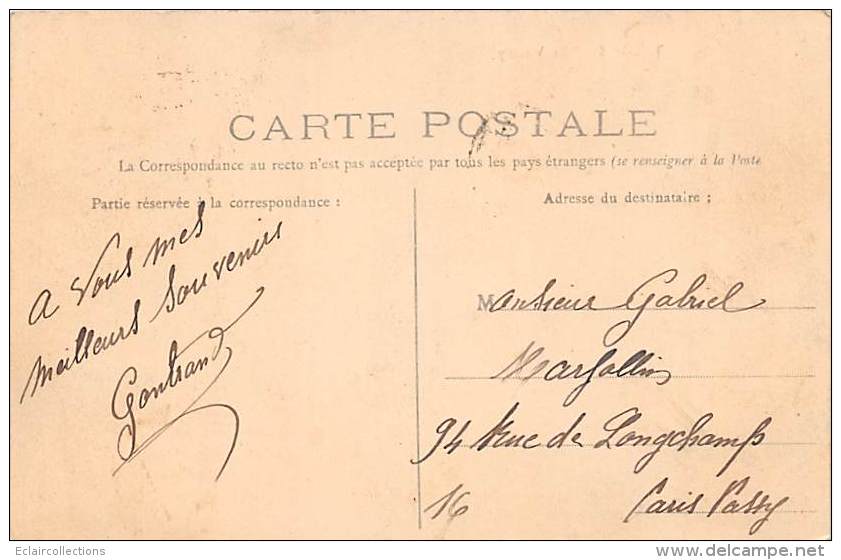 CARTE POSTALE
La Correspondance au recto n'est pas acceptée par tous les pays étrangers (se renseigner à la Poste
Partie réservée à la correspondance :
Adresse du destinataire ;
A Vous mes
meilleurs souvenirs
Gontrand
Monsieur Gabriel
94 Rue de Longchamps
16 Paris Passy
Eclaircollections
www.delcampe.net